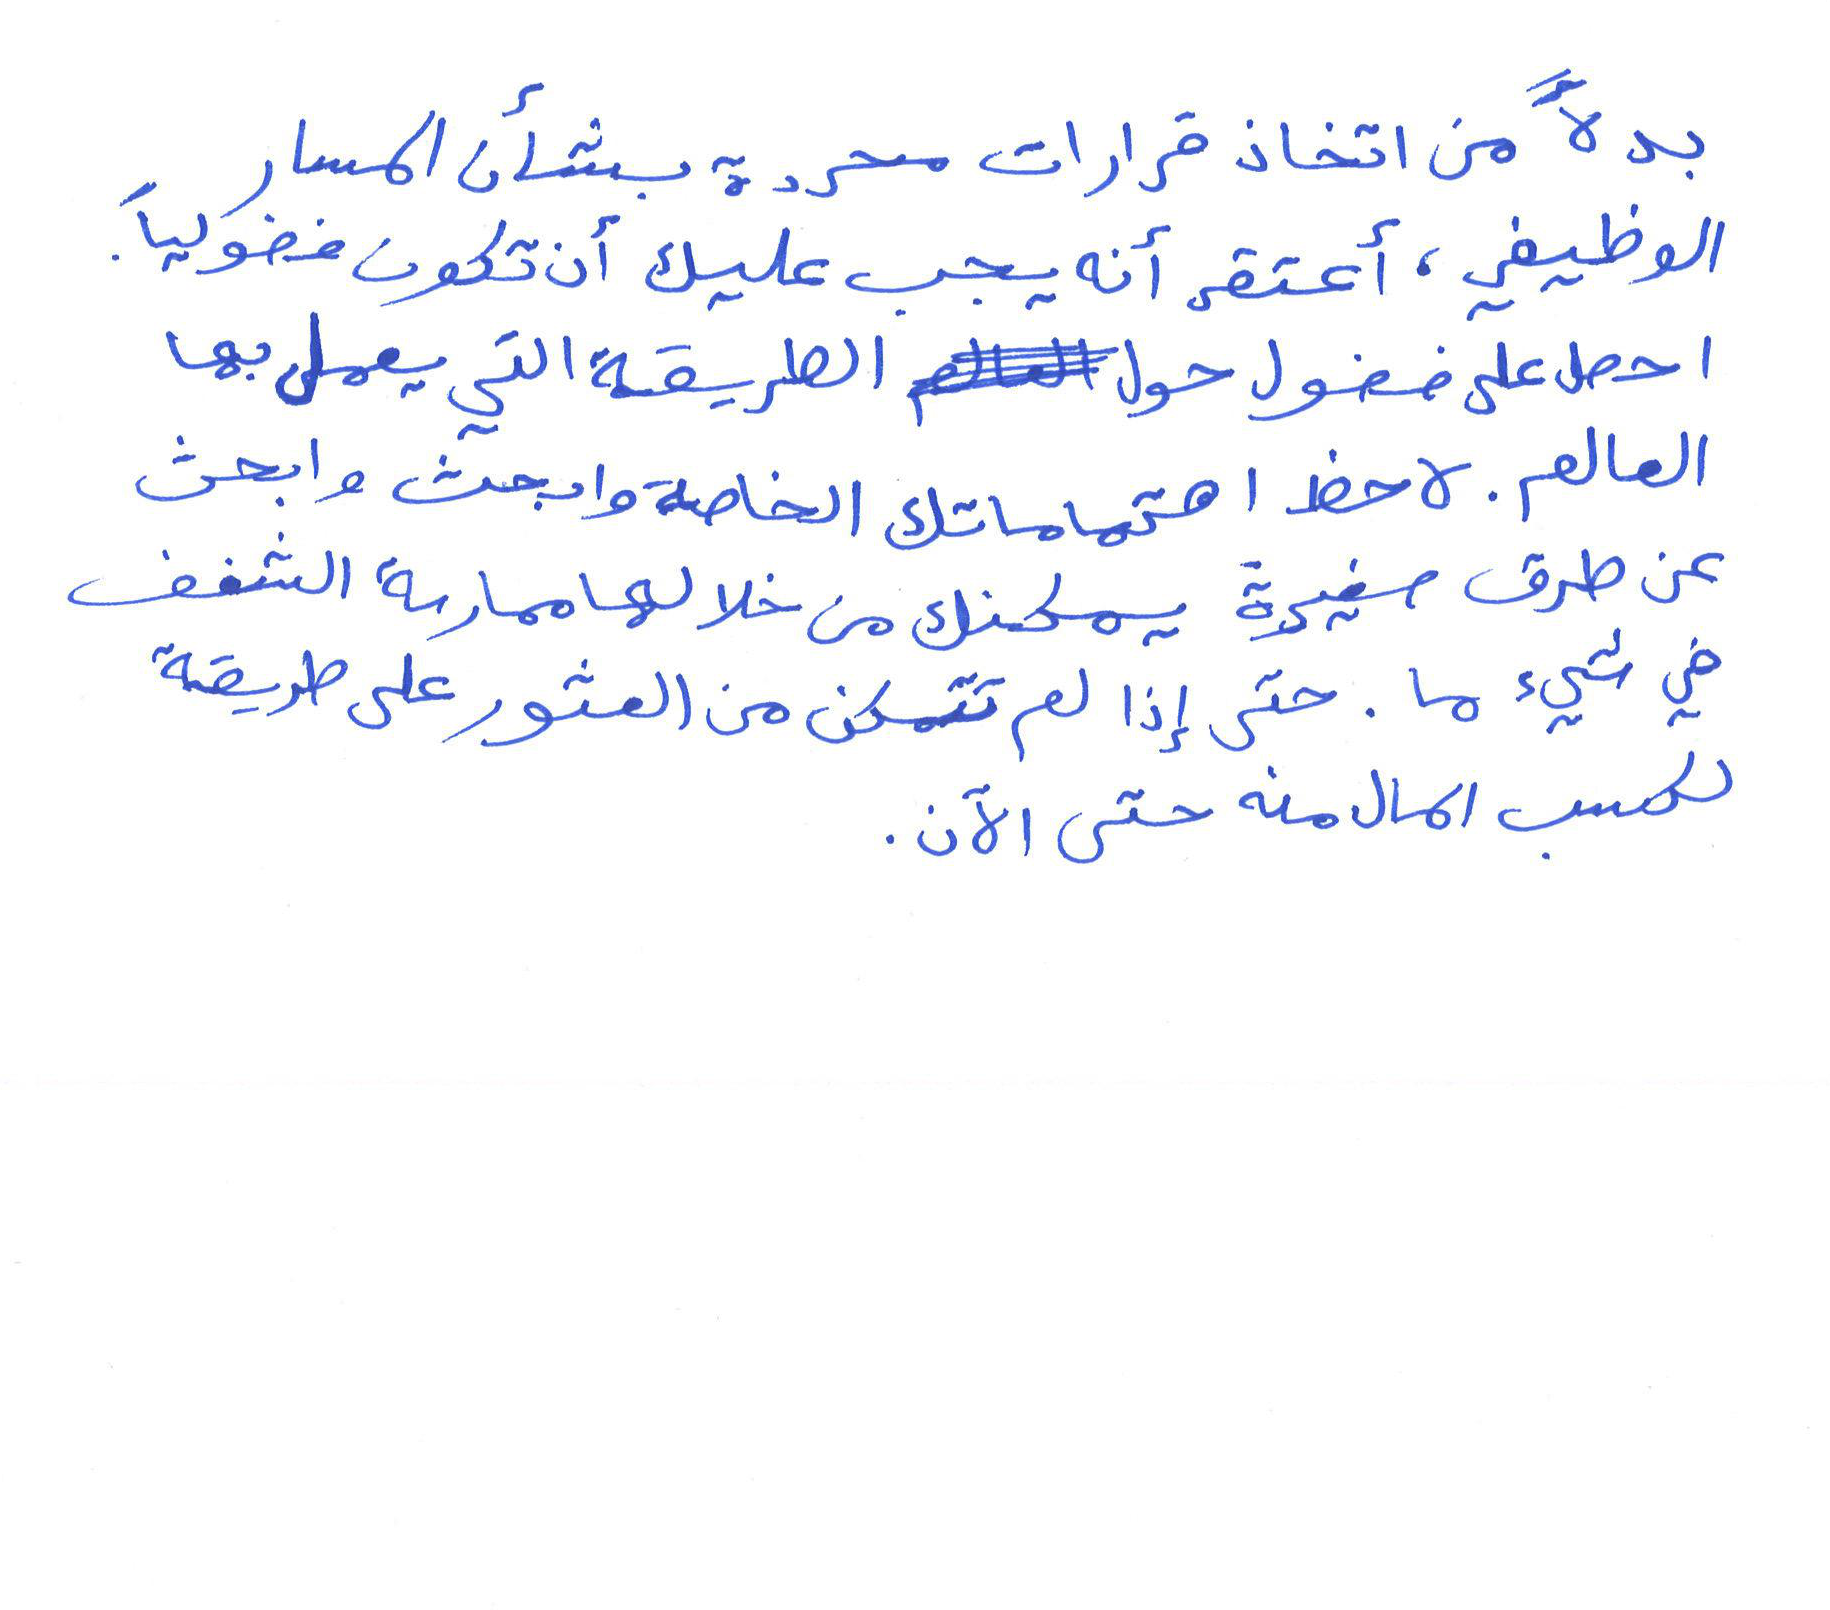 بدلاً من اتخاذ قرارات محددة بشأن المسار
الوظيفي، أعتقد أنه يجب عليك أن تكون فضولياً.
احصل على فضول حول الطريقة التي يعمل بها
العالم. لاحظ اهتماماتك الخاصة وابحث وابحث
عن طرق صغيرة يمكنك من خلالها ممارسة الشغف
في شيء ما. حتى إذا لم تتمكن من العثور على طريقة
لكسب المال منه حتى الآن.